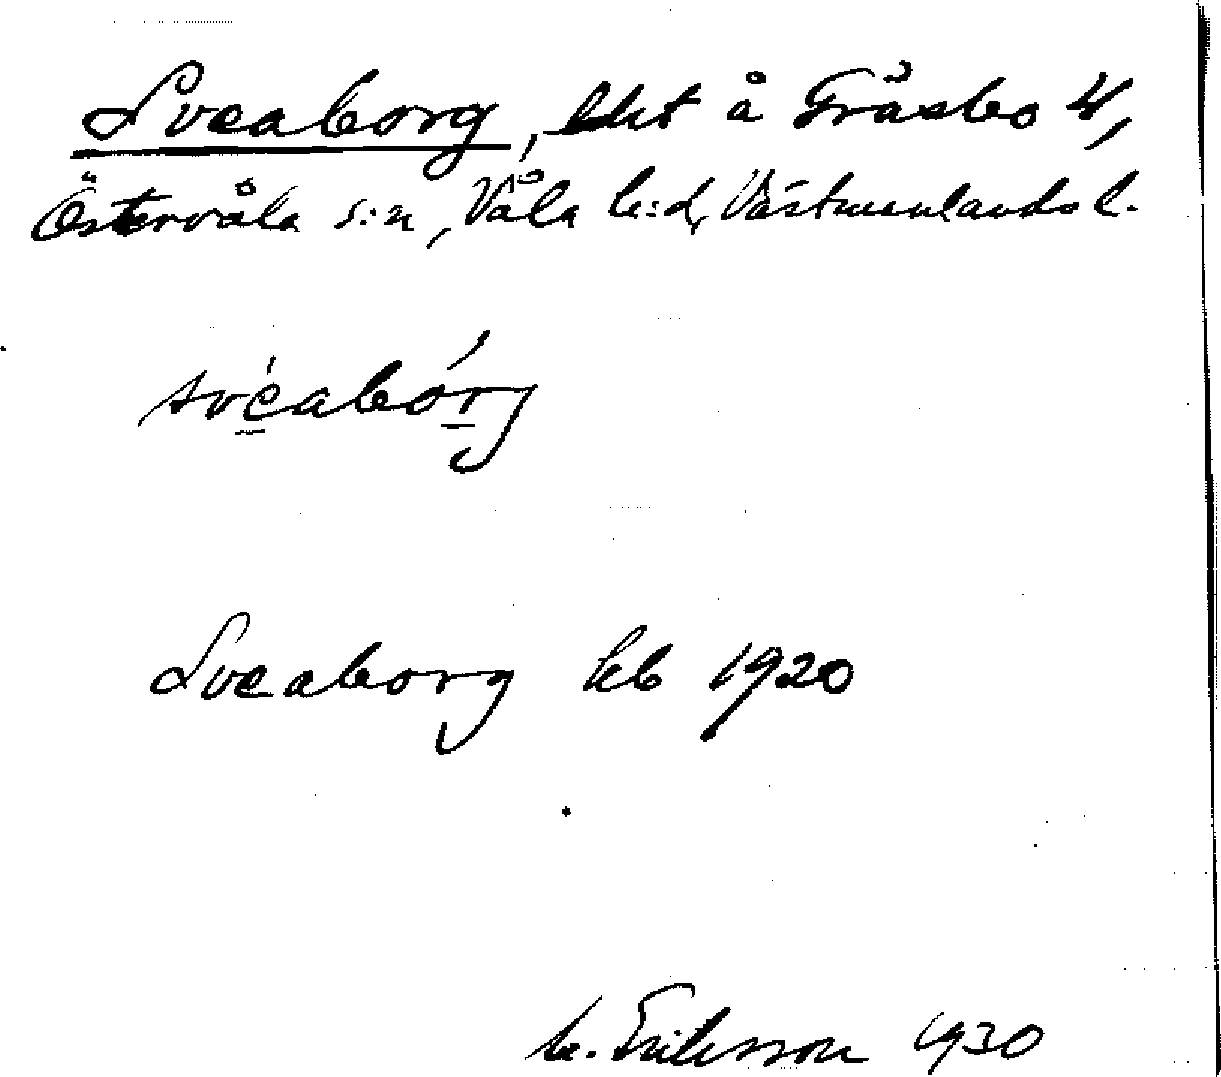 Sveaborg, lht å Gräsbo 4,
Östervåla s:n, Våla h:d, Västmanlands l.
svéabórg
Sveaborg kb 1920
Eriksson 1930